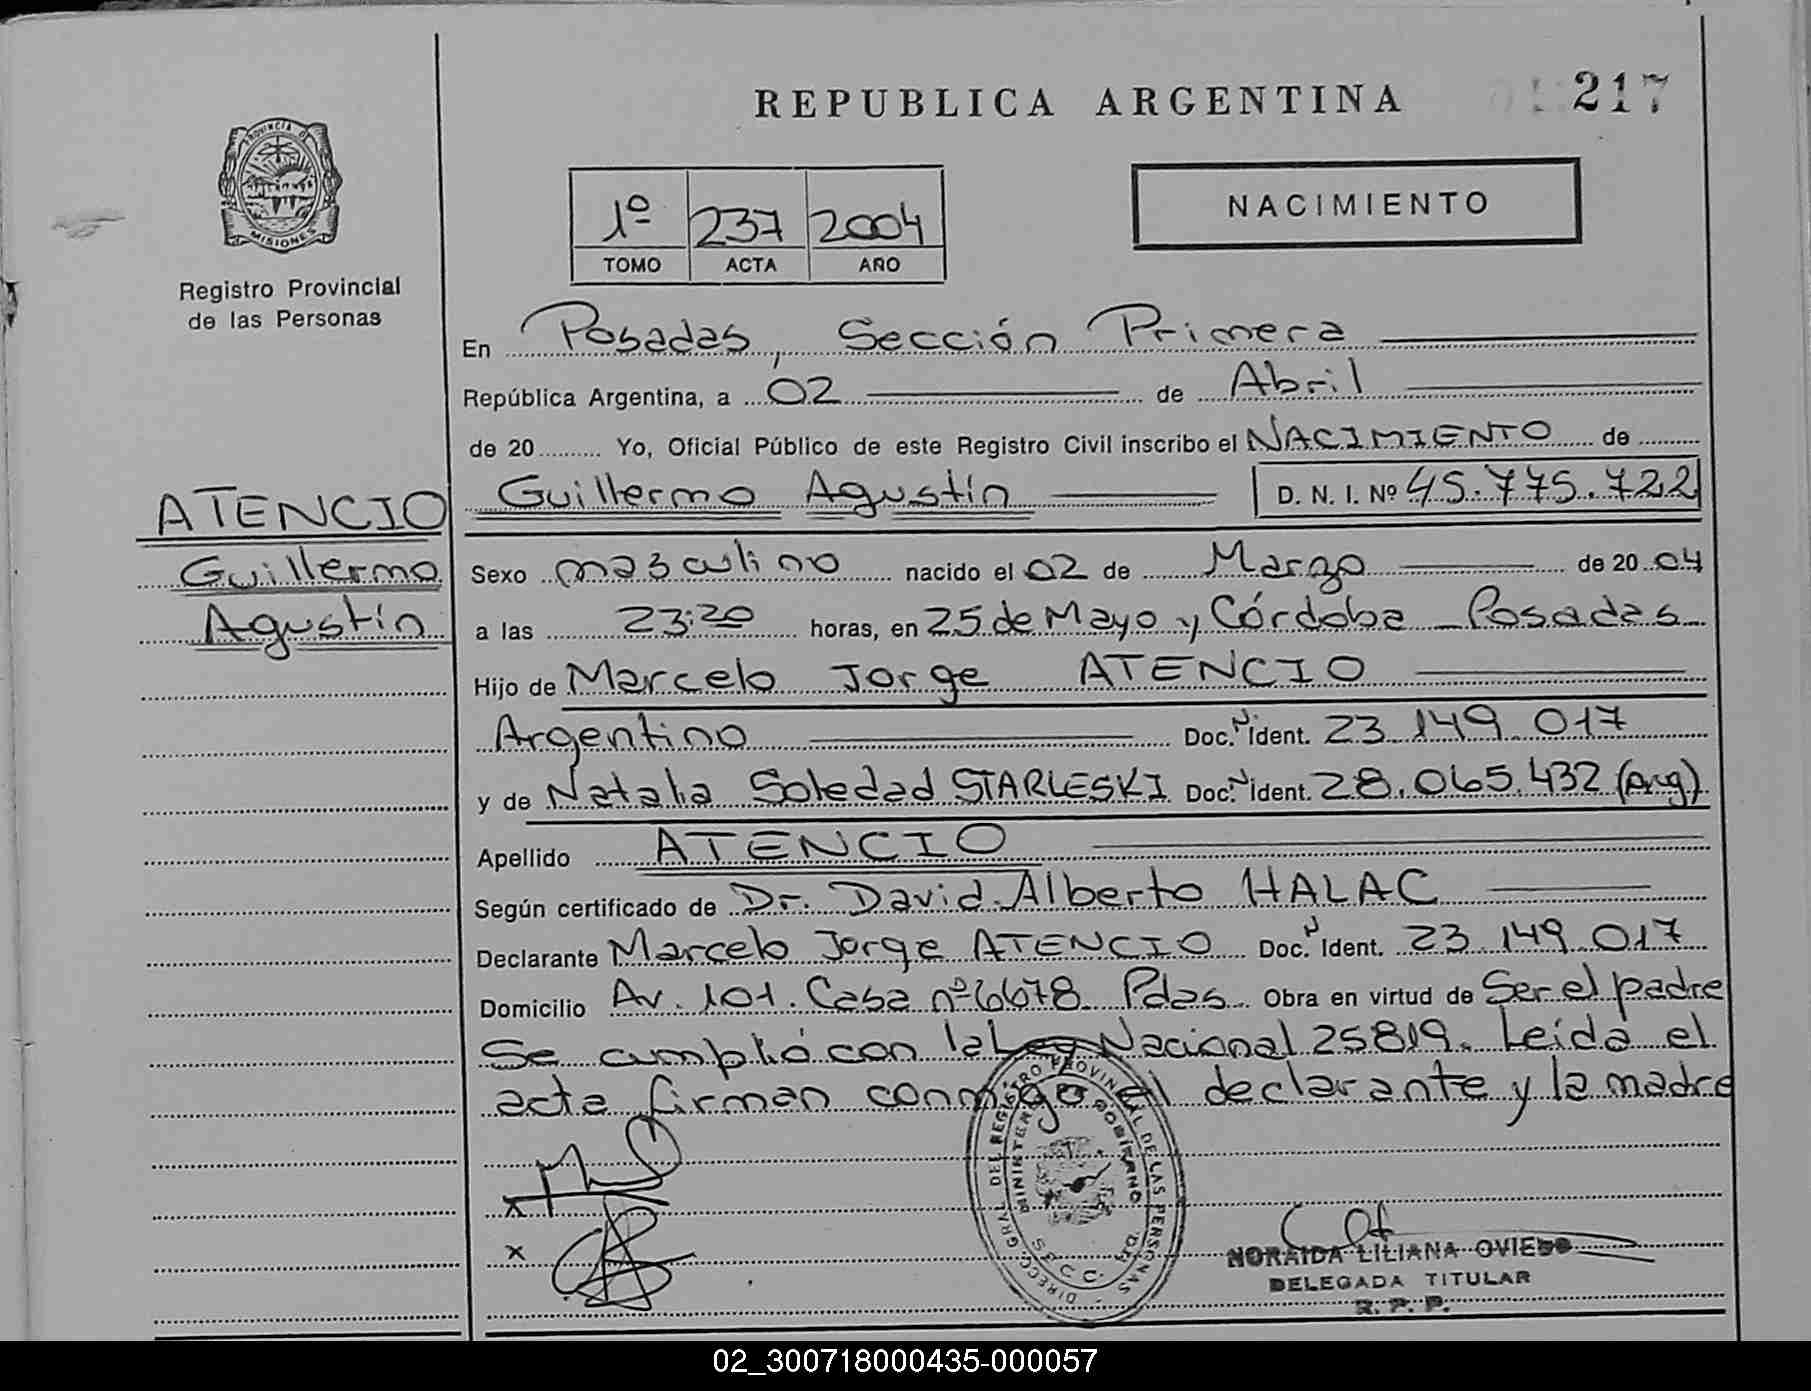 REPUBLICA ARGENTINA
217
PROVINCIA DE
MISIONES
Registro Provincial
de las Personas
1º 237 2004
TOMO ACTA AÑO
NACIMIENTO
En Posadas, Sección Primera
República Argentina, a 02 de Abril
de 20 Yo, Oficial Público de este Registro Civil inscribo el NACIMIENTO de
ATENCIO
Guillermo
Agustín
Guillermo Agustín D. N. I. Nº 45.775.722
Sexo masculino nacido el 02 de Marzo de 20 04
a las 23:20 horas, en 25 de Mayo y Córdoba - Posadas
Hijo de Marcelo Jorge ATENCIO
Argentino Doc. N Ident. 23.149.017
y de Natalia Soledad STARLESKI Doc. N Ident. 28.065.432 (Arg)
Apellido ATENCIO
Según certificado de Dr. David Alberto HALAC
Declarante Marcelo Jorge ATENCIO Doc. N Ident. 23.149.017
Domicilio Av. 101. Casa nº 6678 Pdas Obra en virtud de Ser el padre
Se cumplió con la Ley Nacional 25819. Leída el
acta firman conmigo el declarante y la madre
x
x
DIRECC. GRAL. DEL REGISTRO PROVINCIAL DE LAS PERSONAS
MINISTERIO DE GOBIERNO
NORAIDA LILIANA OVIEDO
DELEGADA TITULAR
R. P. P.
02_300718000435-000057